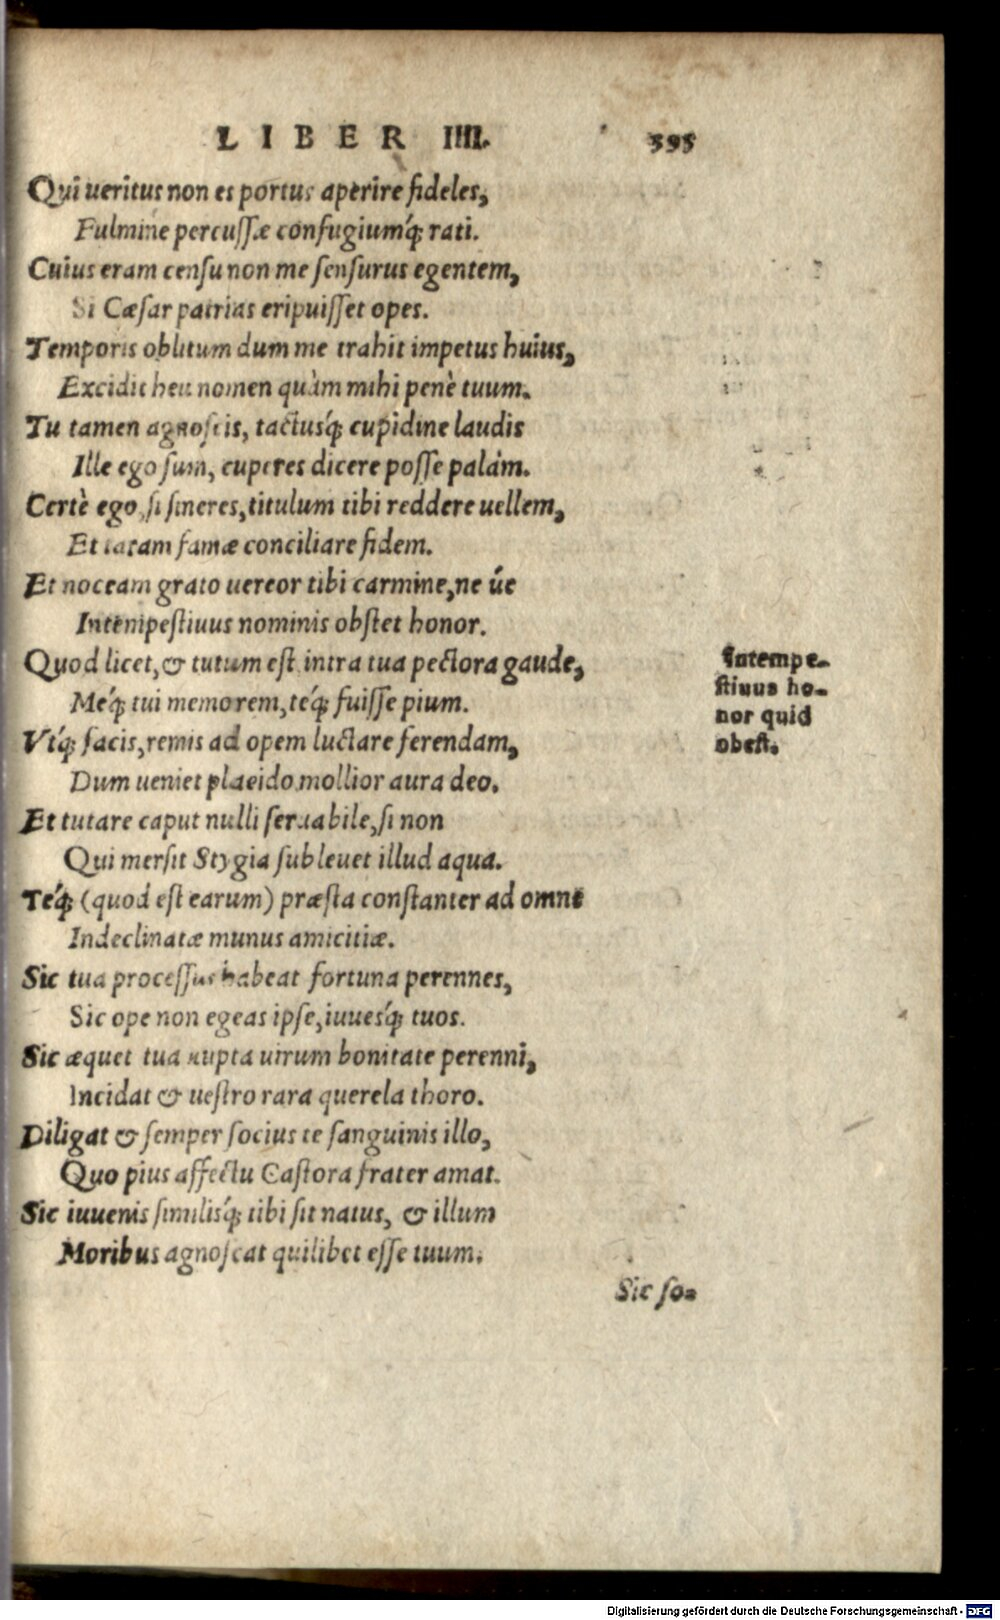 LIBER IIII. 595
Qui ueritus non es portus aperire fideles,
Fulmine percussæ confugiumq́; rati.
Cuius eram censu non me sensurus egentem,
Si Cæsar patrias eripuisset opes.
Temporis oblitum dum me trahit impetus huius,
Excidit heu nomen quàm mihi penè tuum.
Tu tamen agnoscis, tactusq́; cupidine laudis
Ille ego sum, cuperes dicere posse palàm.
Certè ego, si sineres, titulum tibi reddere uellem,
Et raram famæ conciliare fidem.
Et noceam grato uereor tibi carmine, ne úe
Intempestiuus nominis obstet honor.
Quod licet, & tutum est intra tua pectora gaude,
Meq́; tui memorem, teq́; fuisse pium.
Vtq́; facis, remis ad opem luctare ferendam,
Dum ueniet plaeido mollior aura deo.
Et tutare caput nulli seruabile, si non
Qui mersit Stygia subleuet illud aqua.
Teq́; (quod est earum) præsta constanter ad omne
Indeclinatæ munus amicitiæ.
Sic tua processus habeat fortuna perennes,
Sic ope non egeas ipse, iuuesq́; tuos.
Sic æquet tua nupta uirum bonitate perenni,
Incidat & uestro rara querela thoro.
Diligat & semper socius te sanguinis illo,
Quo pius affectu Castora frater amat.
Sic iuuenis similisq́; tibi sit natus, & illum
Moribus agnoscat quilibet esse tuum.
Sic so-
Intempe-
stiuus ho-
nor quid
obest.
Digitalisierung gefördert durch die Deutsche Forschungsgemeinschaft - DFG